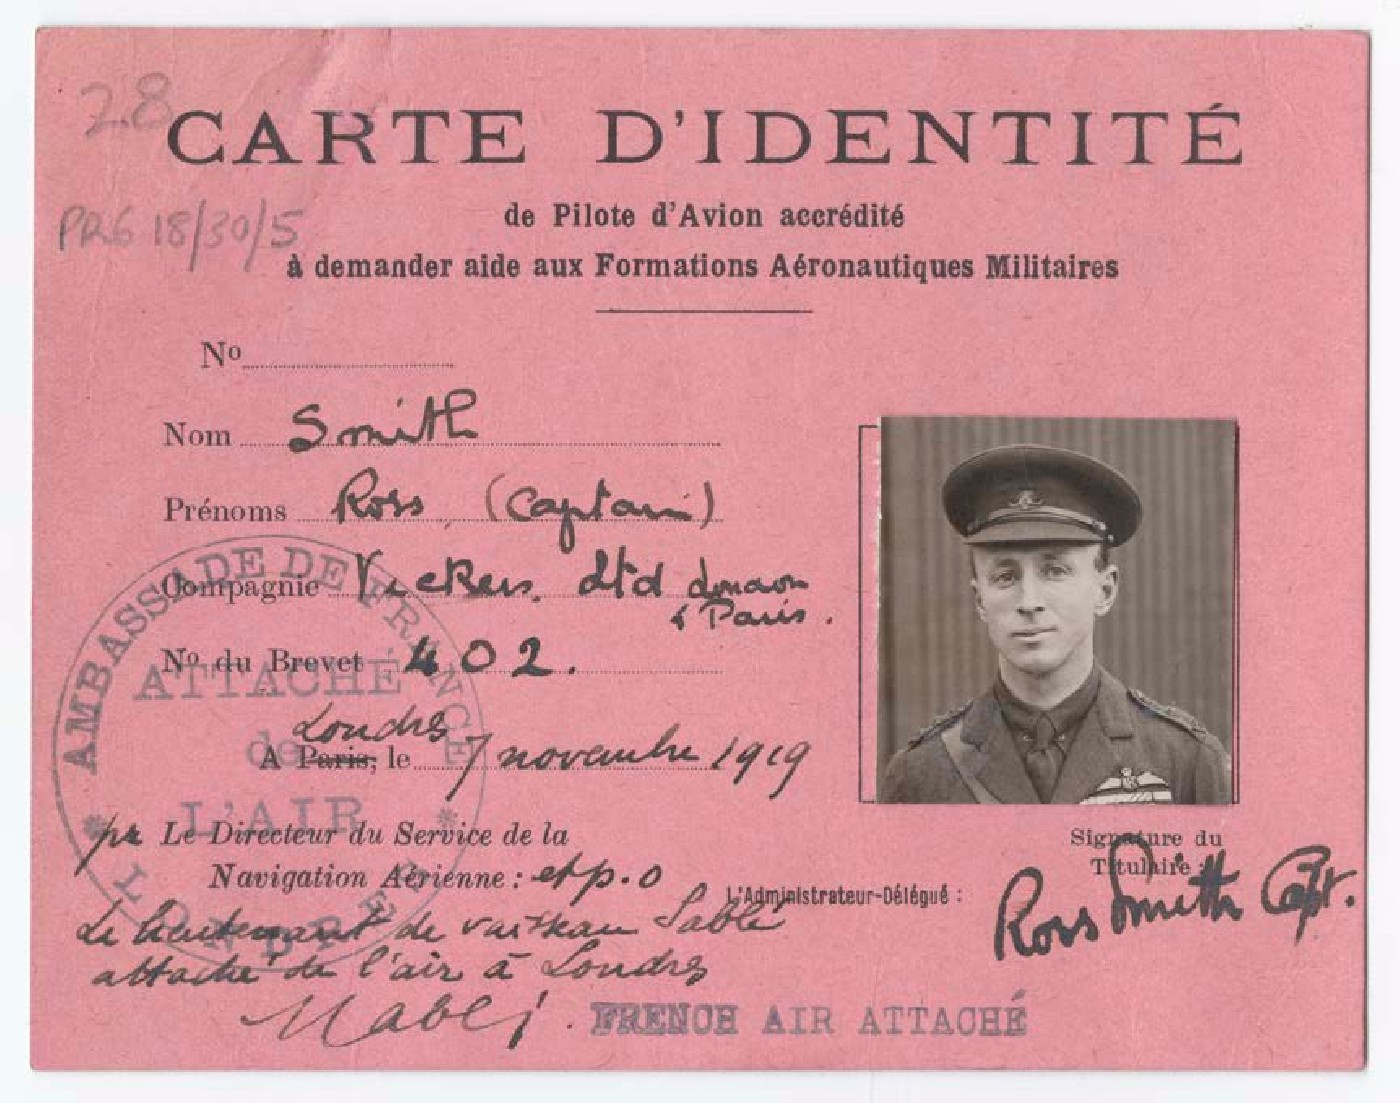 28
CARTE D'IDENTITÉ
de Pilote d'Avion accrédité
PRG 18/30/5
à demander aide aux Formations Aéronautiques Militaires
No
Nom Smith
Prénoms Ross (Captain)
Compagnie Vickers. Ltd London
& Paris.
No du Brevet 402.
Londres
A Paris, le 7 novembre 1919
pr Le Directeur du Service de la
Navigation Aérienne : et p.o
L'Administrateur-Délégué :
Le lieutenant de vaisseau Sablé
attaché de l'air à Londres
Signature du
Titulaire :
Ross Smith Capt.
FRENCH AIR ATTACHÉ
AMBASSADE DE FRANCE
ATTACHÉ
de
L'AIR
LONDRES